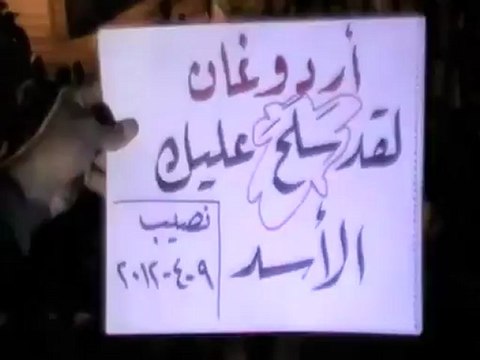 أردوغان
لقد سلح عليك
الأسد
نصيب
٢٠١٢-٤-٩